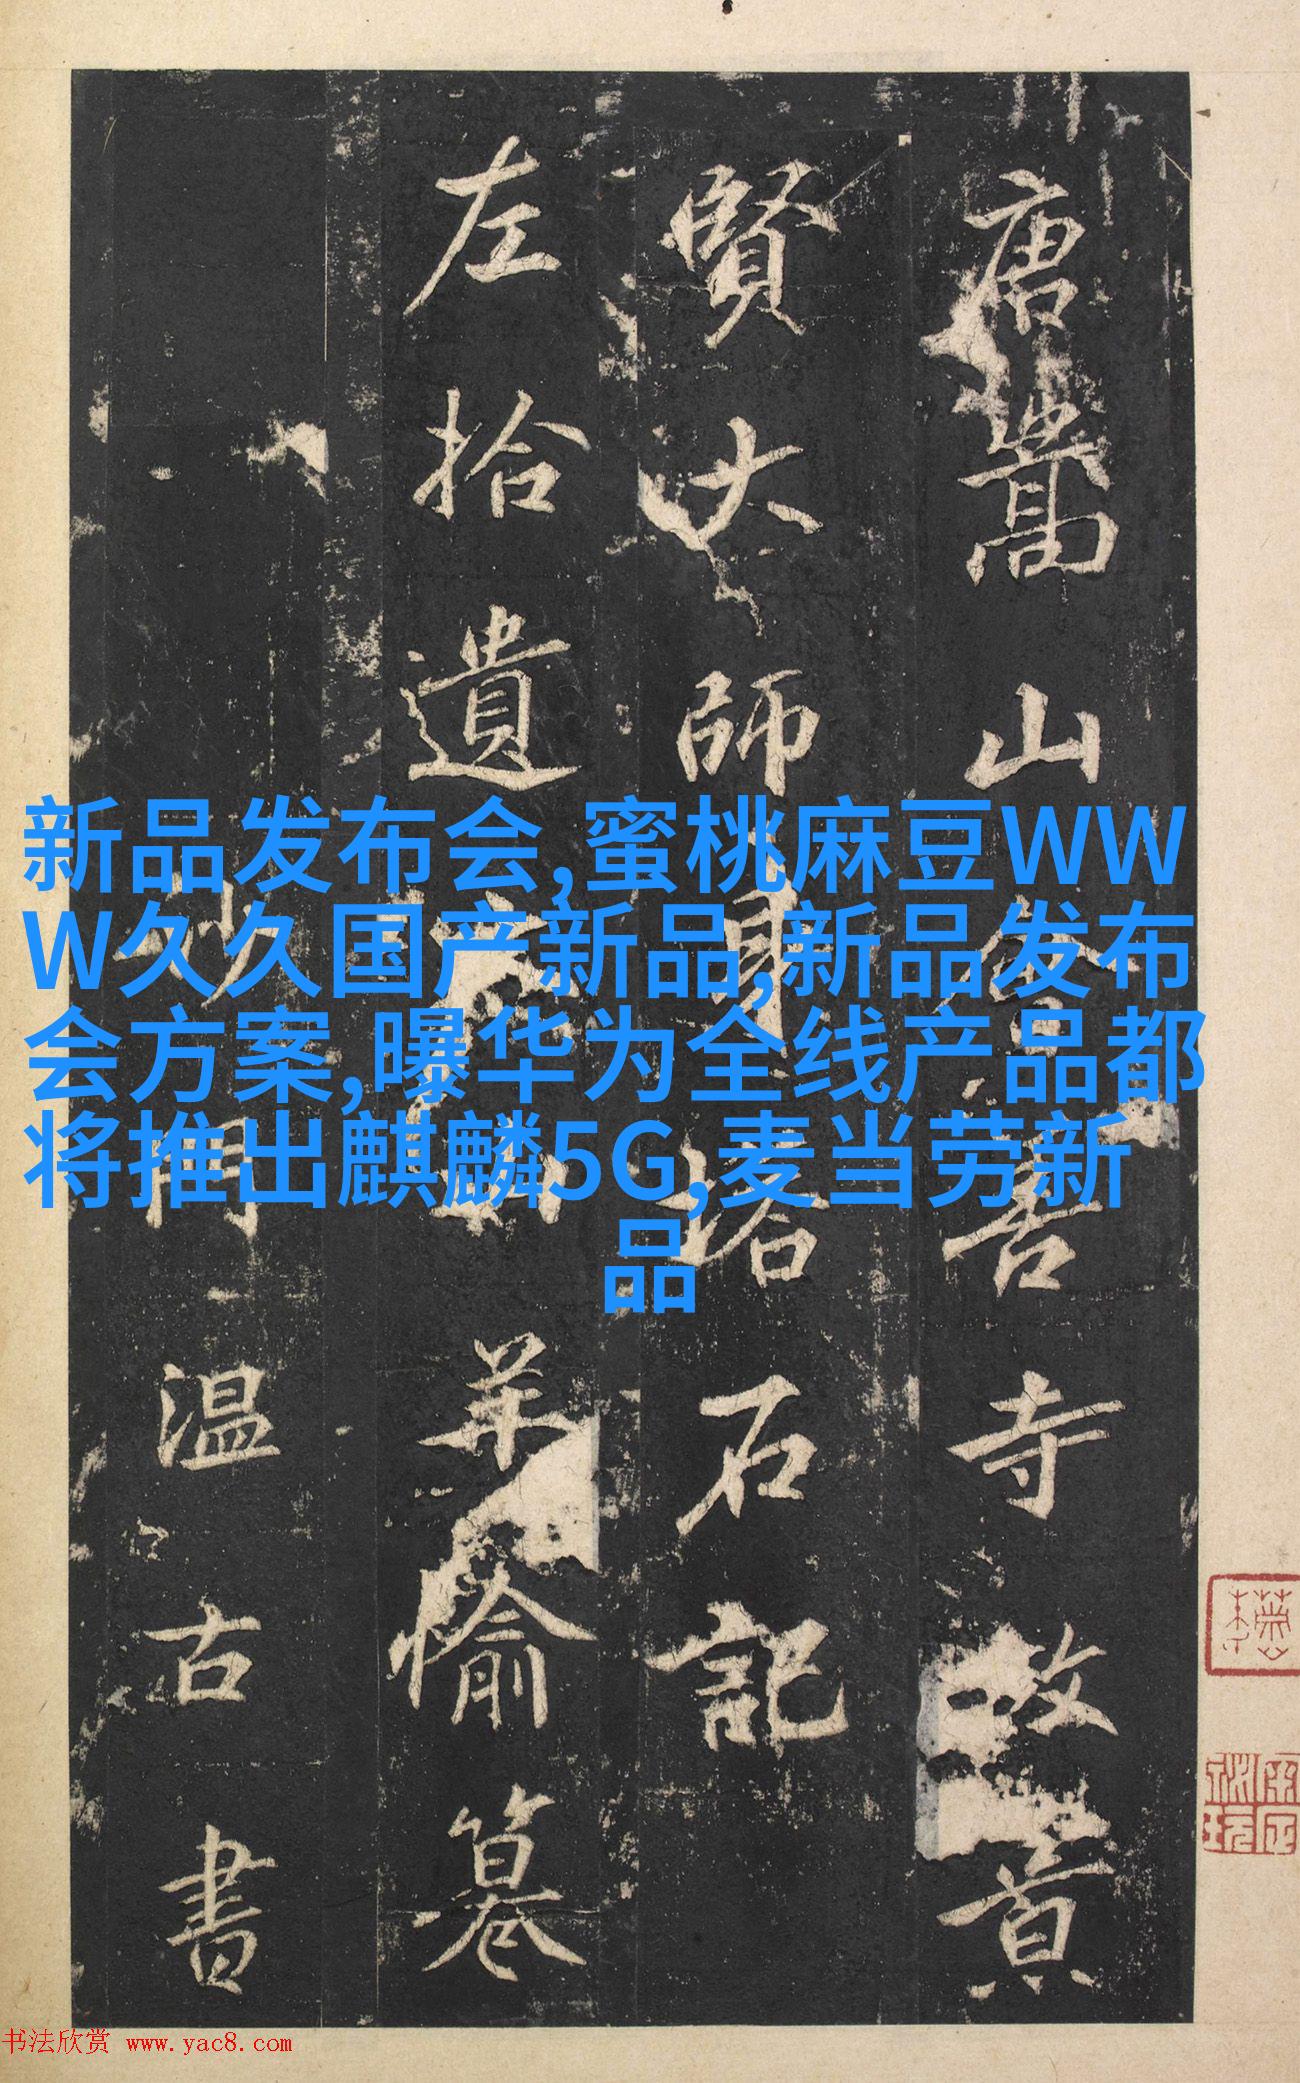 唐嵩山會善寺故景
賢大師身塔石記
左拾遺羊愉纂
沙門溫古書
新品发布会,蜜桃麻豆WW
W久久国产新品,新品发布
会方案,曝华为全线产品都
将推出麒麟5G,麦当劳新
品
书法欣赏 www.yac8.com